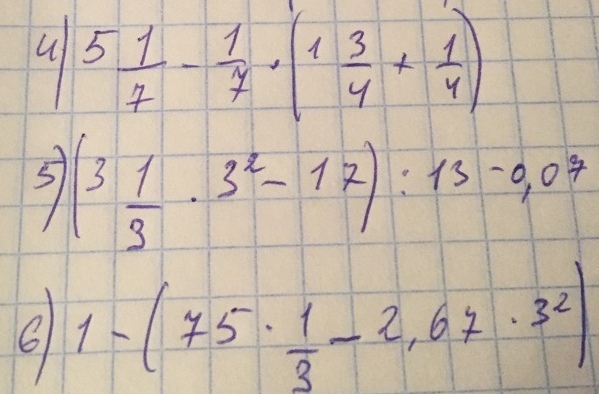 4) 5 1/7 - 1/7 · (1 3/4 + 1/4)
5) (3 1/3 · 3² - 17) : 13 - 0,07
6) 1 - (75 · 1/3 - 2,67 · 3²)